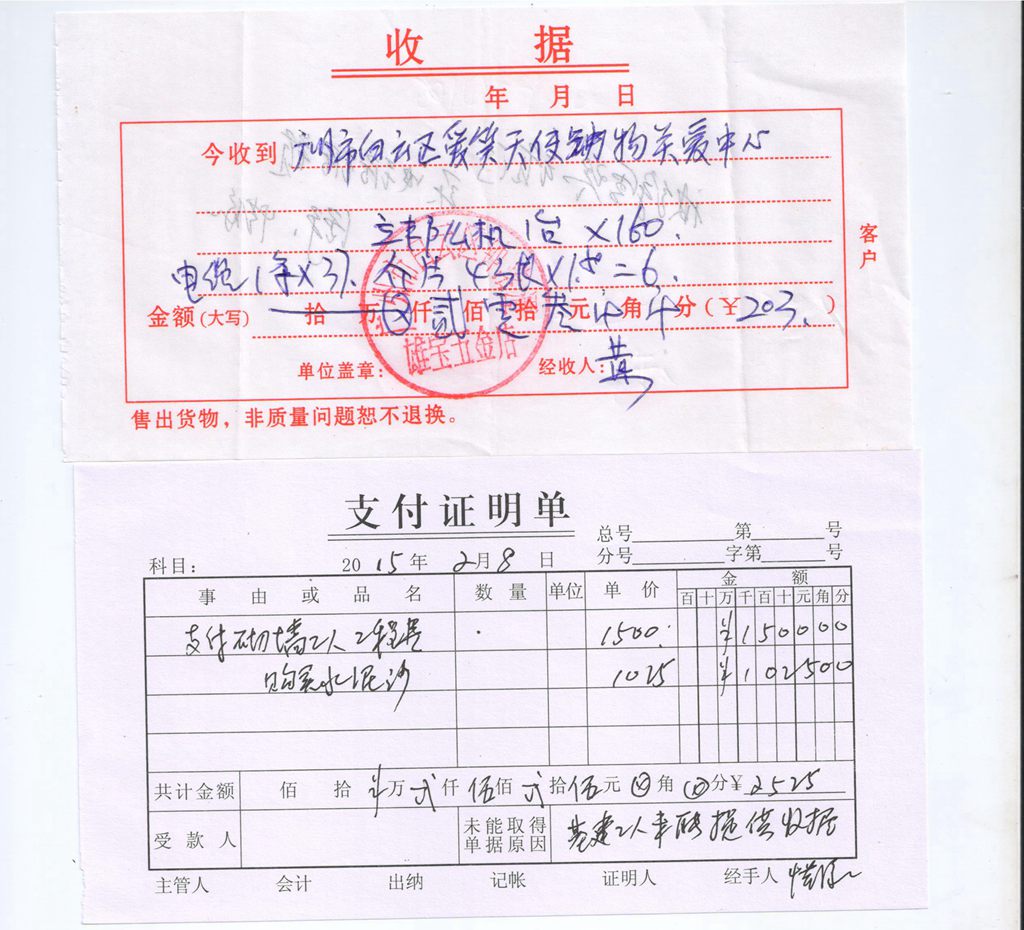 收 据
年 月 日
今收到 广州市白云区爱笑天使宠物关爱中心
机 1台 ×160.
电缆 ×37. ＝6.
金额(大写) 拾 万 仟 贰佰零拾叁元 角 分 (￥ 203. )
雄宝五金店
单位盖章: 经收人: 黄
客户
售出货物，非质量问题恕不退换。
支付证明单
总号 第 号
科目: 2015年 2月8日
分号 字第 号
事由或品名 数量 单位 单价 金额
百 十 万 千 百 十 元 角 分
支付砌墙工人工程费 1500. ￥150000
购买水泥沙 1025 ￥102500
共计金额 佰 拾 ￥万 弍仟 伍佰 弍拾 伍元 角 分￥ 2525
受款人 未能取得单据原因 基建工人未能提供收据
主管人 会计 出纳 记帐 证明人 经手人